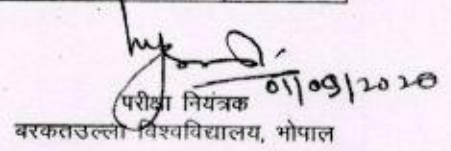 01/09/2020
परीक्षा नियंत्रक
बरकतउल्ला विश्वविद्यालय, भोपाल